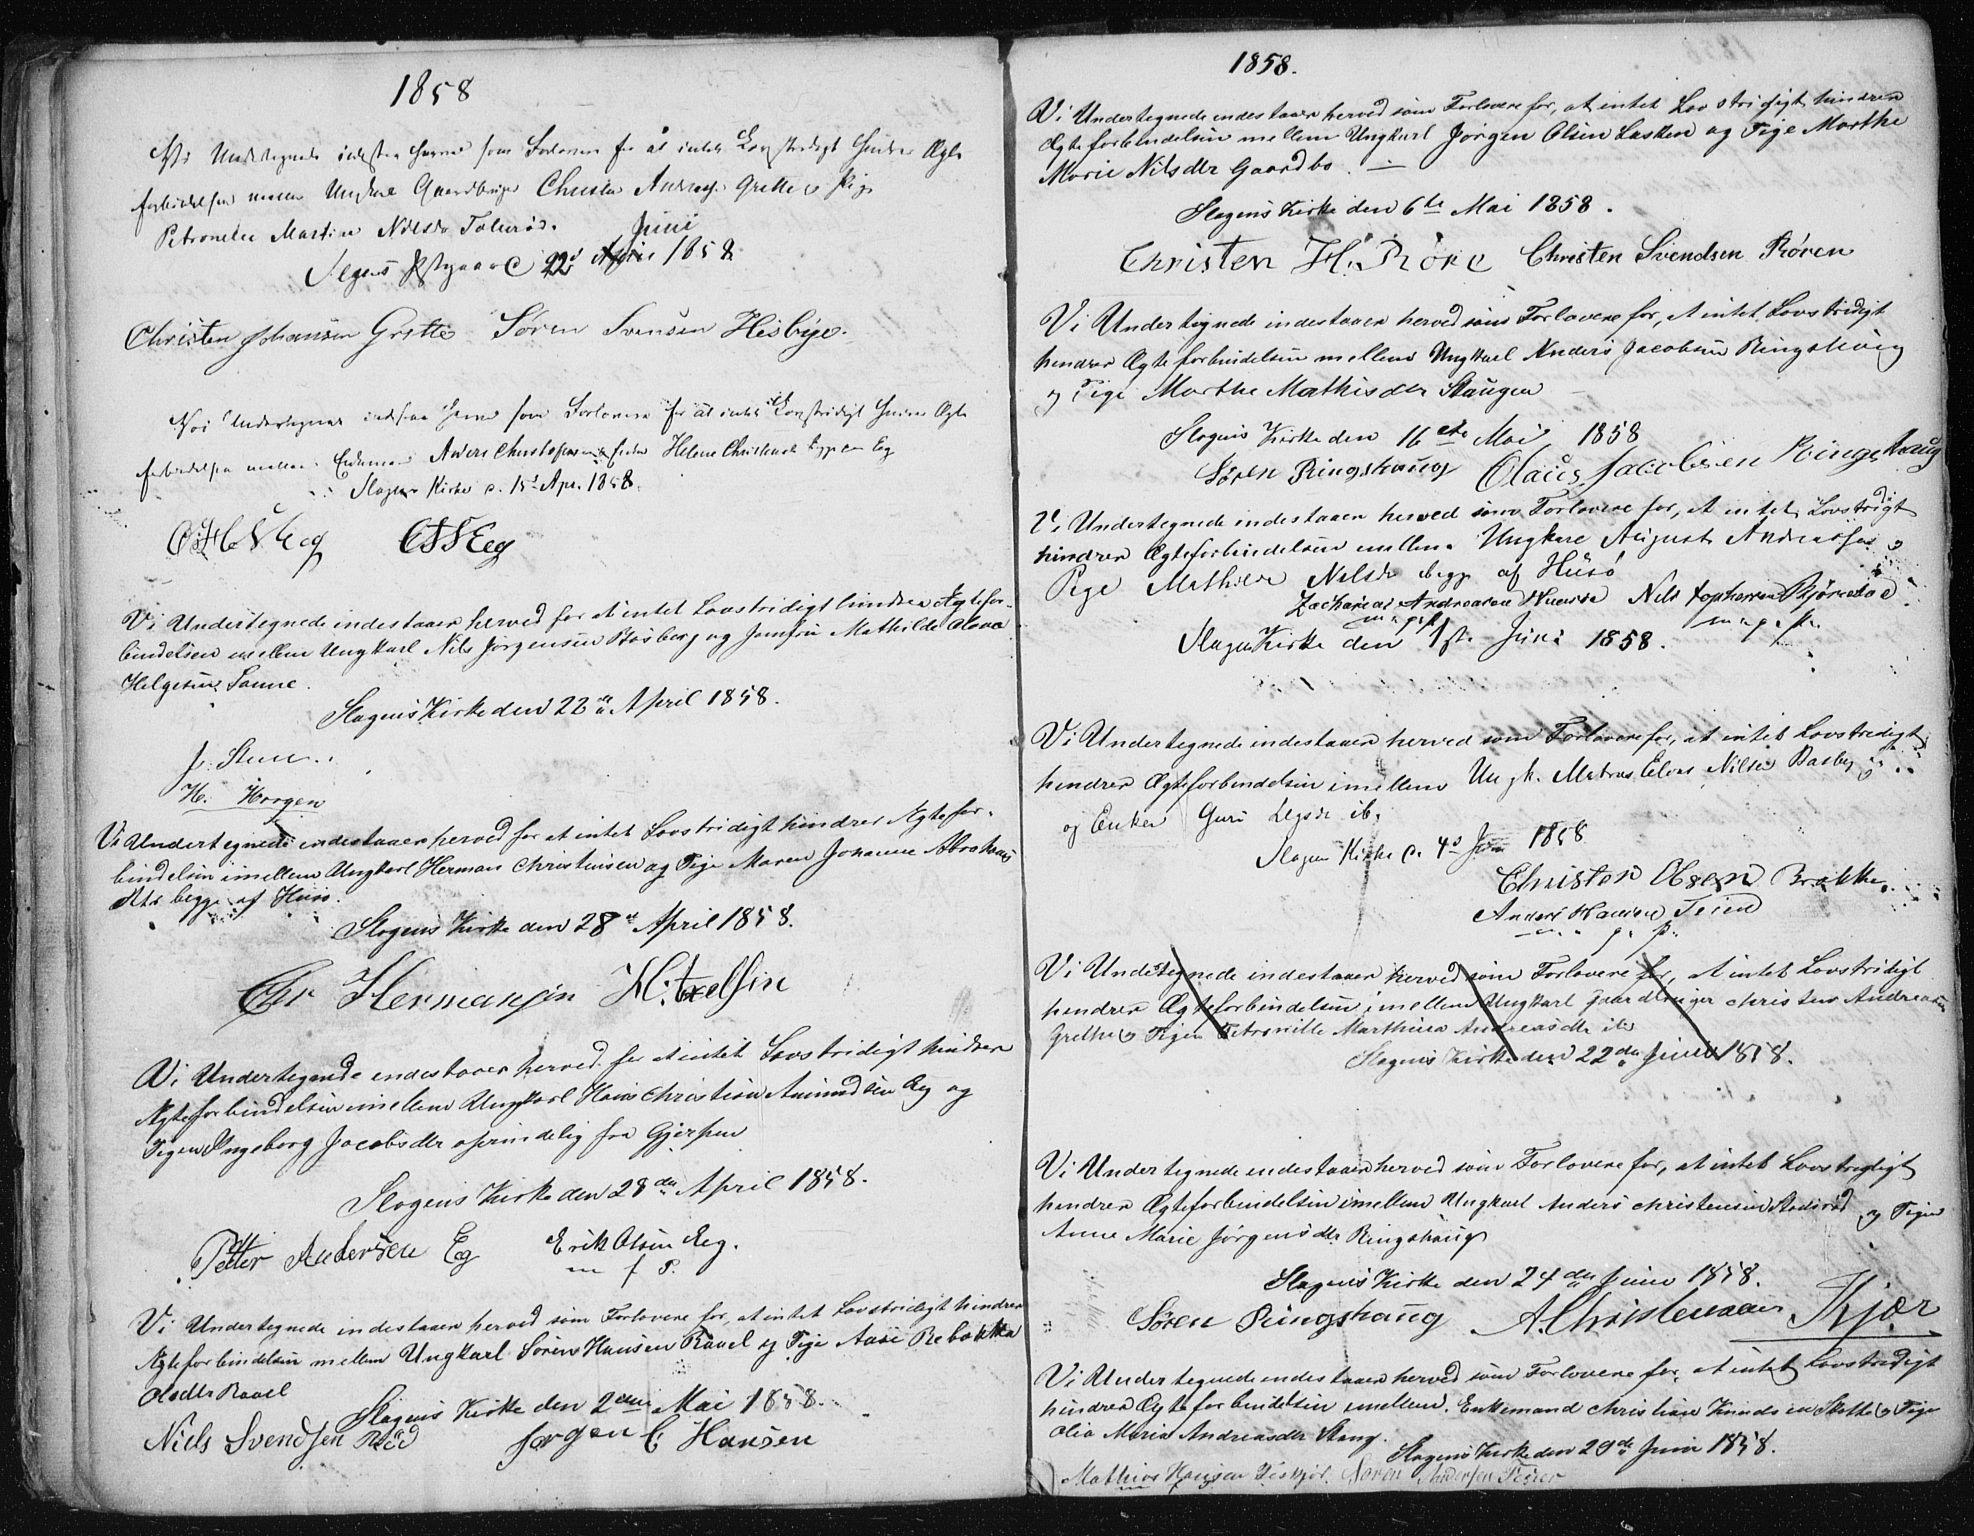 1858
Vi Undertegnede indestaa herved som Forlovere for at intet Lovstridigt hindrer Ægte
forbindelsen mellem Ungkarl Gaardbruger Christen Andreas. Grette og Pige
Petronelle Martine Nilsdr Tolsrød.
Juni
Slagens Præstgaard d 22d April 1858
Christen Johansen Grette Søren Svensen Hesbye.
Vi Undertegnede indestaa herved som Forlovere for at intet Lovstridigt hindrer Ægte
forbindelsen mellem Enkemand Anders Christophersen og Helene Christensdr begge af Eeg
Slagens Kirke d. 15d Apr. 1858.
Vi Undertegnede indestaaer herved for at intet Lovstridigt hindrer Ægtefor-
bindelsen imellem Ungkarl Nils Jørgensen Basberg og Jomfru Mathilde Olava
Helgesen Sanne.
Slagens Kirke den 22de April 1858.
H. Horgen
Vi Undertegnede indestaaer herved for at intet Lovstridigt hindrer Ægtefor-
bindelsen imellem Ungkarl Herman Christensen og Pige Maren Johanne Abrahams
dtr begge af Husø.
Slagens Kirke den 28de April 1858.
Chr Hermansen H: Axelsen
Vi Undertegende endestaaer herved for at intet Lovstridigt hindrer
Ægteforbindelsen imellem Ungkarl Hans Christian Amundsen Eeg og
Pigen Ingeborg Jacobsdtr oprindelig fra Gjerpen
Slagens Kirke den 28de April 1858.
Petter Andersen Eg Erik Olsen Eeg.
m f P.
Vi Undertegnede indestaaer herved som Forlovere for, at intet Lovstridigt hindrer
Ægteforbindelsen mellem Ungkarl Søren Hansen Raael og Pige Aase Rebekka
Olsdtr Raael
Slagens Kirke den 2den Mai 1858.
Niels Svendsen Rød Jørgen C Hansen
1858.
Vi Undertegnede indestaaer herved som Forlovere for, at intet Lovstridigt hindrer
Ægteforbindelsen mellem Ungkarl Jørgen Olsen Lasken og Pige Marthe
Marie Nilsdtr Gaardbo. —
Slagens Kirke den 6te Mai 1858.
Christen H. Røre Christen Svendsen Røren
Vi Undertegnede indestaaer herved som Forlovere for, at intet Lovstridigt
hindrer Ægteforbindelsen mellem Ungkarl Anders Jacobsen Ringshoug
og Pige Marthe Mathisdtr Stangen
Slagens Kirke den 16de Mai 1858
Søren Ringshaug Olaus Jacobsen Ringshaug
Vi Undertegnede indestaaer herved som Forlovere for, at intet Lovstridigt
hindrer Ægteforbindelsen mellem Ungkarl August Andreasen og
Pige Mathilde Nilsdr begge af Husø
Zacharias Andreasen Husø Nils Bjørnstad
m. p. P. m. p. P.
Slagens Kirke den 1ste Juni 1858.
Vi Undertegnede indestaaer herved som Forlovere for, at intet Lovstridigt
hindrer Ægteforbindelsen imellem Ungk. Elias Nilsen Basberg
og Enken Guri ib.
Slagens Kirke d. 4d Juni 1858
Christen Olsen Brække
Anders Hansen Teien
m. p. P.
Vi Undertegnede indestaaer herved som Forlovere for, at intet Lovstridigt
hindrer Ægteforbindelsen imellem Ungkarl Gaardbruger Christen Andreasen
Grette og Pigen Petronille Marthina Andreasdtr ib
Slagens Kirke den 22de Juni 1858.
Vi Undertegnede endestaaer herved som Forlovere for, at intet Lovstridigt
hindrer Ægteforbindelsen imellem Ungkarl Anders Christensen og Pigen
Anne Marie Jørgensdtr Ringshaug
Slagens Kirke den 24de Juni 1858.
Søren Ringshaug A. Christensen Kjær
Vi Undertegnede endestaaer herved som Forlovere for, at intet Lovstridigt
hindrer Ægteforbindelsen imellem Enkemand Christian Knudsen og Pige
Olia Maria Andreasdtr Stang.
Slagens Kirke den 29de Juni 1858.
Mathias Hansen Søren Andersen